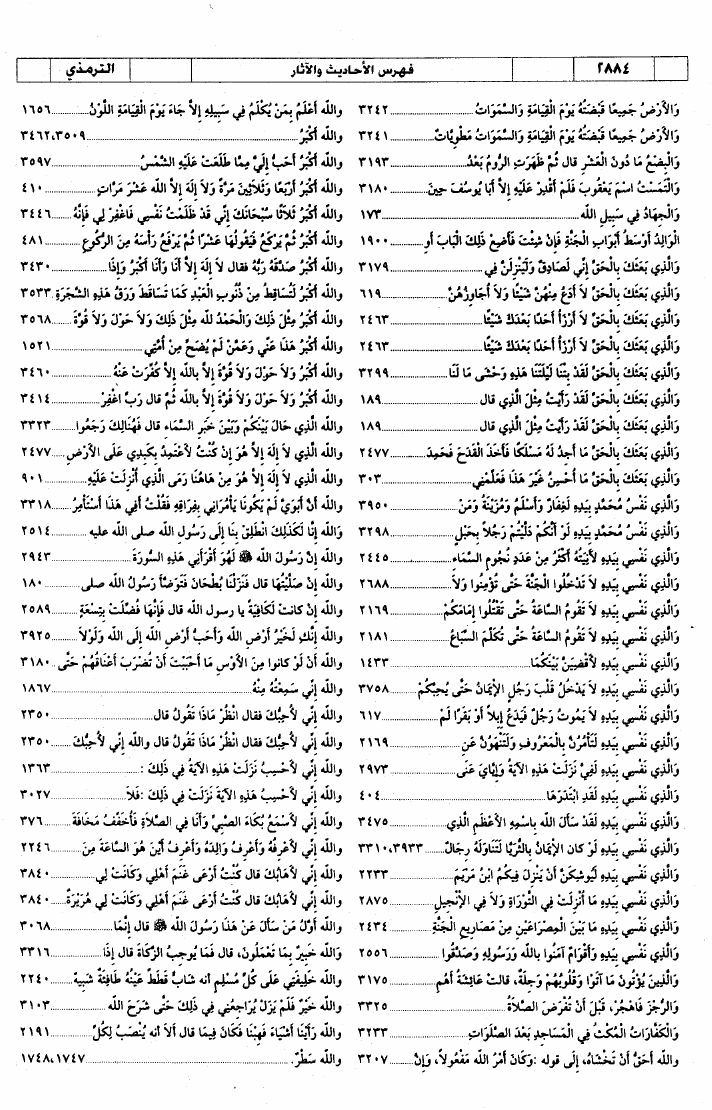 ٢٨٨٤ فهرس الأحاديث والآثار الترمذي
وَالأَرْضُ جَمِيعًا قَبْضَتُهُ يَوْمَ الْقِيَامَةِ وَالسَّمَوَاتُ ٣٢٤٢
وَالأَرْضُ جَمِيعًا قَبْضَتُهُ يَوْمَ الْقِيَامَةِ وَالسَّمَوَاتُ مَطْوِيَّاتٌ ٣٢٤١
وَالْبِضْعُ مَا دُونَ الْعَشْرِ قال ثُمَّ ظَهَرَتِ الرُّومُ بَعْدُ ٣١٩٣
وَالْتَمَسْتُ اسْمَ يَعْقُوبَ فَلَمْ أَقْدِرْ عَلَيْهِ إِلاَّ أَبَا يُوسُفَ حِينَ ٣١٨٠
وَالْجِهَادُ فِي سَبِيلِ اللَّه ١٧٣
الْوَالِدُ أَوْسَطُ أَبْوَابِ الْجَنَّةِ فَإِنْ شِئْتَ فَأَضِعْ ذَلِكَ الْبَابَ أَوِ ١٩٠٠
وَالَّذِي بَعَثَكَ بِالْحَقِّ إِنِّي لَصَادِقٌ وَلَيَنْزِلَنَّ فِي ٣١٧٩
وَالَّذِي بَعَثَكَ بِالْحَقِّ لاَ أَدَعُ مِنْهُنَّ شَيْئًا وَلاَ أُجَاوِزُهُنَّ ٦١٩
وَالَّذِي بَعَثَكَ بِالْحَقِّ لاَ أَرْزَأُ أَحَدًا بَعْدَكَ شَيْئًا ٢٤٦٣
وَالَّذِي بَعَثَكَ بِالْحَقِّ لاَ أَرْزَأُ أَحَدًا بَعْدَكَ شَيْئًا ٢٤٦٣
وَالَّذِي بَعَثَكَ بِالْحَقِّ لَقَدْ بِتْنَا لَيْلَتَنَا هَذِهِ وَحْشَى مَا لَنَا ٣٢٩٩
وَالَّذِي بَعَثَكَ بِالْحَقِّ لَقَدْ رَأَيْتُ مِثْلَ الَّذِي قال ١٨٩
وَالَّذِي بَعَثَكَ بِالْحَقِّ لَقَدْ رَأَيْتُ مِثْلَ الَّذِي قال ١٨٩
وَالَّذِي بَعَثَكَ بِالْحَقِّ مَا أَجِدُ لَهُ مَسْلَكًا فَأَخَذَ الْقَدَحَ فَحَمِدَ ٢٤٧٧
وَالَّذِي بَعَثَكَ بِالْحَقِّ مَا أُحْسِنُ غَيْرَ هَذَا فَعَلِّمْنِي ٣٠٣
وَالَّذِي نَفْسُ مُحَمَّدٍ بِيَدِهِ لَغِفَارُ وَأَسْلَمُ وَمُزَيْنَةُ وَمَنْ ٣٩٥٠
وَالَّذِي نَفْسُ مُحَمَّدٍ بِيَدِهِ لَوْ أَنَّكُمْ دَلَّيْتُمْ رَجُلاً بِحَبْلٍ ٣٢٩٨
وَالَّذِي نَفْسِي بِيَدِهِ لآنِيَتُهُ أَكْثَرُ مِنْ عَدَدِ نُجُومِ السَّمَاءِ ٢٤٤٥
وَالَّذِي نَفْسِي بِيَدِهِ لاَ تَدْخُلُوا الْجَنَّةَ حَتَّى تُؤْمِنُوا وَلاَ ٢٦٨٨
وَالَّذِي نَفْسِي بِيَدِهِ لاَ تَقُومُ السَّاعَةُ حَتَّى تَقْتُلُوا إِمَامَكُمْ ٢١٦٩
وَالَّذِي نَفْسِي بِيَدِهِ لاَ تَقُومُ السَّاعَةُ حَتَّى تُكَلِّمَ السِّبَاعُ ٢١٨١
وَالَّذِي نَفْسِي بِيَدِهِ لأَقْضِيَنَّ بَيْنَكُمَا ١٤٣٣
وَالَّذِي نَفْسِي بِيَدِهِ لاَ يَدْخُلُ قَلْبَ رَجُلٍ الإِيْمَانُ حَتَّى يُحِبَّكُمْ ٣٧٥٨
وَالَّذِي نَفْسِي بِيَدِهِ لاَ يَمُوتُ رَجُلٌ فَيَدَعُ إِبِلاً أَوْ بَقَرًا لَمْ ٦١٧
وَالَّذِي نَفْسِي بِيَدِهِ لَتَأْمُرُنَّ بِالْمَعْرُوفِ وَلَتَنْهَوُنَّ عَنِ ٢١٦٩
وَالَّذِي نَفْسِي بِيَدِهِ لَفِيَّ نَزَلَتْ هَذِهِ الآيَةُ وَإِيَّايَ عَنَى ٢٩٧٣
وَالَّذِي نَفْسِي بِيَدِهِ لَقَدِ ابْتَدَرَهَا ٤٠٤
وَالَّذِي نَفْسِي بِيَدِهِ لَقَدْ سَأَلَ اللَّه بِاسْمِهِ الأَعْظَمِ الَّذِي ٣٤٧٥
وَالَّذِي نَفْسِي بِيَدِهِ لَوْ كان الإِيْمَانُ بِالثُّرَيَّا لَتَنَاوَلَهُ رِجَالٌ ٣٣١٠،٣٩٣٣
وَالَّذِي نَفْسِي بِيَدِهِ لَيُوشِكَنَّ أَنْ يَنْزِلَ فِيكُمُ ابْنُ مَرْيَمَ ٢٢٣٣
وَالَّذِي نَفْسِي بِيَدِهِ مَا أُنْزِلَتْ فِي التَّوْرَاةِ وَلاَ فِي الإِنْجِيلِ ٢٨٧٥
وَالَّذِي نَفْسِي بِيَدِهِ مَا بَيْنَ الْمِصْرَاعَيْنِ مِنْ مَصَارِيعِ الْجَنَّةِ ٢٤٣٤
وَالَّذِي نَفْسِي بِيَدِهِ وَأَقْوَامٌ آمَنُوا بِاللَّه وَرَسُولِهِ وَصَدَّقُوا ٢٥٥٦
وَالَّذِينَ يُؤْتُونَ مَا آتَوْا وَقُلُوبُهُمْ وَجِلَةٌ، قالت عَائِشَةُ أَهُمِ ٣١٧٥
وَالرُّجْزَ فَاهْجُرْ، قَبْلَ أَنْ تُفْرَضَ الصَّلاَةُ ٣٣٢٥
وَالْكَفَّارَاتُ الْمُكْثُ فِي الْمَسَاجِدِ بَعْدَ الصَّلَوَاتِ ٣٢٣٣
واللَّه أَحَقُّ أَنْ تَخْشَاهُ، إِلَى قوله :وَكَانَ أَمْرُ اللَّه مَفْعُولاً، وَإِنَّ ٣٢٠٧
واللَّه أَعْلَمُ بِمَنْ يُكْلَمُ فِي سَبِيلِهِ إِلاَّ جَاءَ يَوْمَ الْقِيَامَةِ اللَّوْنُ ١٦٥٦
واللَّه أَكْبَرُ ٣٤٦٢،٣٥٠٩
واللَّه أَكْبَرُ أَحَبُّ إِلَيَّ مِمَّا طَلَعَتْ عَلَيْهِ الشَّمْسُ ٣٥٩٧
واللَّه أَكْبَرُ أَرْبَعًا وَثَلاَثِينَ مَرَّةً وَلاَ إِلَهَ إِلاَّ اللَّه عَشْرَ مَرَّاتٍ ٤١٠
واللَّه أَكْبَرُ ثَلاَثًا سُبْحَانَكَ إِنِّي قَدْ ظَلَمْتُ نَفْسِي فَاغْفِرْ لِي فَإِنَّهُ ٣٤٤٦
واللَّه أَكْبَرُ ثُمَّ يَرْكَعُ فَيَقُولُهَا عَشْرًا ثُمَّ يَرْفَعُ رَأْسَهُ مِنَ الرُّكُوعِ ٤٨١
واللَّه أَكْبَرُ صَدَّقَهُ رَبُّهُ فقال لاَ إِلَهَ إِلاَّ أَنَا وَأَنَا أَكْبَرُ وَإِذَا ٣٤٣٠
واللَّه أَكْبَرُ لَتُسَاقِطُ مِنْ ذُنُوبِ الْعَبْدِ كَمَا تَسَاقَطَ وَرَقُ هَذِهِ الشَّجَرَةِ ٣٥٣٣
واللَّه أَكْبَرُ مِثْلَ ذَلِكَ وَالْحَمْدُ للَّه مِثْلَ ذَلِكَ وَلاَ حَوْلَ وَلاَ قُوَّةَ ٣٥٦٨
واللَّه أَكْبَرُ هَذَا عَنِّي وَعَمَّنْ لَمْ يُضَحِّ مِنْ أُمَّتِي ١٥٢١
واللَّه أَكْبَرُ وَلاَ حَوْلَ وَلاَ قُوَّةَ إِلاَّ بِاللَّه إِلاَّ كُفِّرَتْ عَنْهُ ٣٤٦٠
واللَّه أَكْبَرُ وَلاَ حَوْلَ وَلاَ قُوَّةَ إِلاَّ بِاللَّه ثُمَّ قال رَبِّ اغْفِرْ ٣٤١٤
واللَّه الَّذِي حَالَ بَيْنَكُمْ وَبَيْنَ خَبَرِ السَّمَاءِ قال فَهُنَالِكَ رَجَعُوا ٣٣٢٣
واللَّه الَّذِي لاَ إِلَهَ إِلاَّ هُوَ إِنْ كُنْتُ لأَعْتَمِدُ بِكَبِدِي عَلَى الأَرْضِ ٢٤٧٧
واللَّه الَّذِي لاَ إِلَهَ إِلاَّ هُوَ مِنْ هَاهُنَا رَمَى الَّذِي أُنْزِلَتْ عَلَيْهِ ٩٠١
واللَّه أَنَّ أَبَوَيَّ لَمْ يَكُونَا يَأْمُرَانِي بِفِرَاقِهِ فَقُلْتُ أَفِي هَذَا أَسْتَأْمِرُ ٣٣١٨
وَاللَّه إِنَّا لَكَذَلِكَ انْطَلِقْ بِنَا إِلَى رَسُولِ اللَّه صلى اللَّه عليه ٢٥١٤
واللَّه إِنَّ رَسُولَ اللَّه ﷺ لَهُوَ أَقْرَأَنِي هَذِهِ السُّورَةَ ٢٩٤٣
واللَّه إِنْ صَلَّيْتُهَا قال فَنَزَلْنَا بُطْحَانَ فَتَوَضَّأَ رَسُولُ اللَّه صلى ١٨٠
واللَّه إِنْ كانت لَكَافِيَةً يا رسول اللَّه قال فَإِنَّهَا فُضِّلَتْ بِتِسْعَةٍ ٢٥٨٩
واللَّه إِنَّكِ لَخَيْرُ أَرْضِ اللَّه وَأَحَبُّ أَرْضِ اللَّه إِلَى اللَّه وَلَوْلاَ ٣٩٢٥
واللَّه أَنْ لَوْ كانوا مِنَ الأَوْسِ مَا أَحْبَبْتَ أَنْ تُضْرَبَ أَعْنَاقُهُمْ حَتَّى ٣١٨٠
واللَّه إِنِّي سَمِعْتُهُ مِنْهُ ١٨٦٧
واللَّه إِنِّي لأُحِبُّكَ فقال انْظُرْ مَاذَا تَقُولُ قال ٢٣٥٠
واللَّه إِنِّي لأُحِبُّكَ فقال انْظُرْ مَاذَا تَقُولُ قال واللَّه إِنِّي لأُحِبُّكَ ٢٣٥٠
واللَّه إِنِّي لأَحْسِبُ نَزَلَتْ هَذِهِ الآيَةَ فِي ذَلِكَ : ١٣٦٣
واللَّه إِنِّي لأَحْسِبُ هَذِهِ الآيَةَ نَزَلَتْ فِي ذَلِكَ :فَلاَ ٣٠٢٧
واللَّه إِنِّي لأَسْمَعُ بُكَاءَ الصَّبِيِّ وَأَنَا فِي الصَّلاَةِ فَأُخَفِّفُ مَخَافَةَ ٣٧٦
واللَّه إِنِّي لأَعْرِفُهُ وَأَعْرِفُ وَالِدَهُ وَأَعْرِفُ أَيْنَ هُوَ السَّاعَةَ مِنَ ٢٢٤٦
واللَّه إِنِّي لأَهَابُكَ قال كُنْتُ أَرْعَى غَنَمَ أَهْلِي وَكَانَتْ لِي ٣٨٤٠
واللَّه إِنِّي لأَهَابُكَ قال كُنْتُ أَرْعَى غَنَمَ أَهْلِي وَكَانَتْ لِي هُرَيْرَةٌ ٣٨٤٠
واللَّه أَوَّلُ مَنْ سَأَلَ عَنْ هَذَا رَسُولَ اللَّه ﷺ قال إِنَّمَا ٣٠٦٨
وَاللَّه خَبِيرٌ بِمَا تَعْمَلُونَ، قال فَمَا يُوجِبُ الزَّكَاةَ قال إِذَا ٣٣١٦
واللَّه خَلِيفَتِي عَلَى كُلِّ مُسْلِمٍ انه شَابٌّ قَطَطٌ عَيْنُهُ طَافِئَةٌ شَبِيهٌ ٢٢٤٠
واللَّه خَيْرٌ فَلَمْ يَزَلْ يُرَاجِعُنِي فِي ذَلِكَ حَتَّى شَرَحَ اللَّه ٣١٠٣
واللَّه رَأَيْنَا أَشْيَاءَ فَهِبْنَا فَكَانَ فِيمَا قال أَلاَ انه يُنْصَبُ لِكُلِّ ٢١٩١
واللَّه سَطْرٌ. ١٧٤٨،١٧٤٧